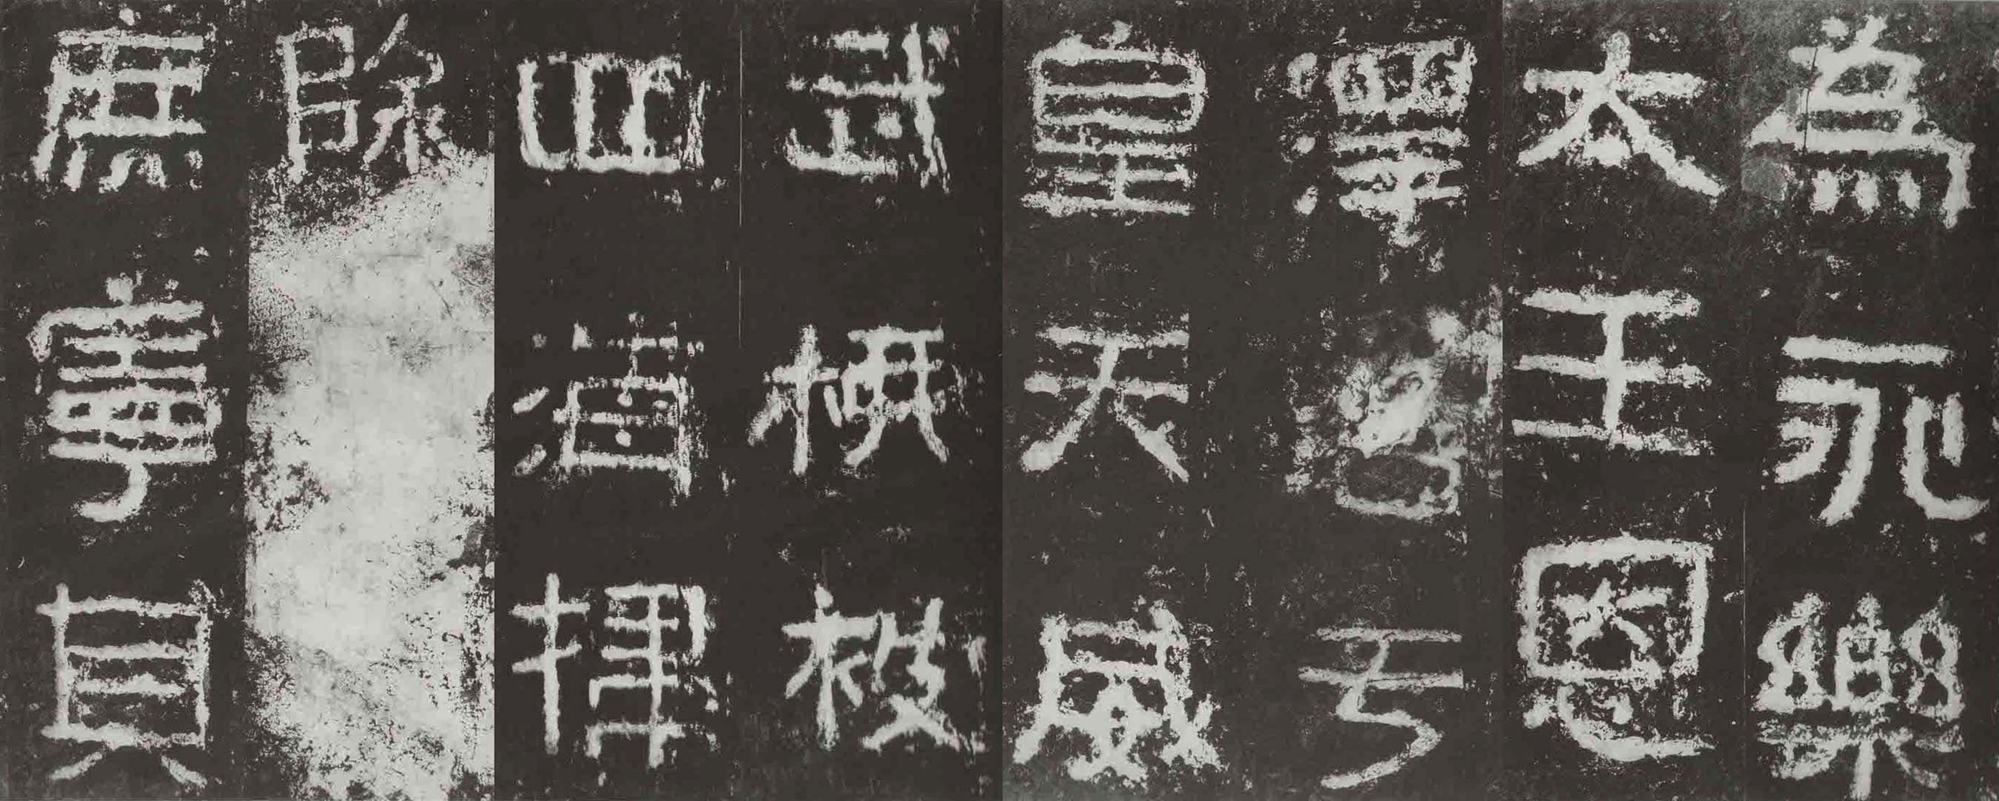 為永樂
太王恩
澤于
皇天威
武振被
四海掃
除
庶寧其